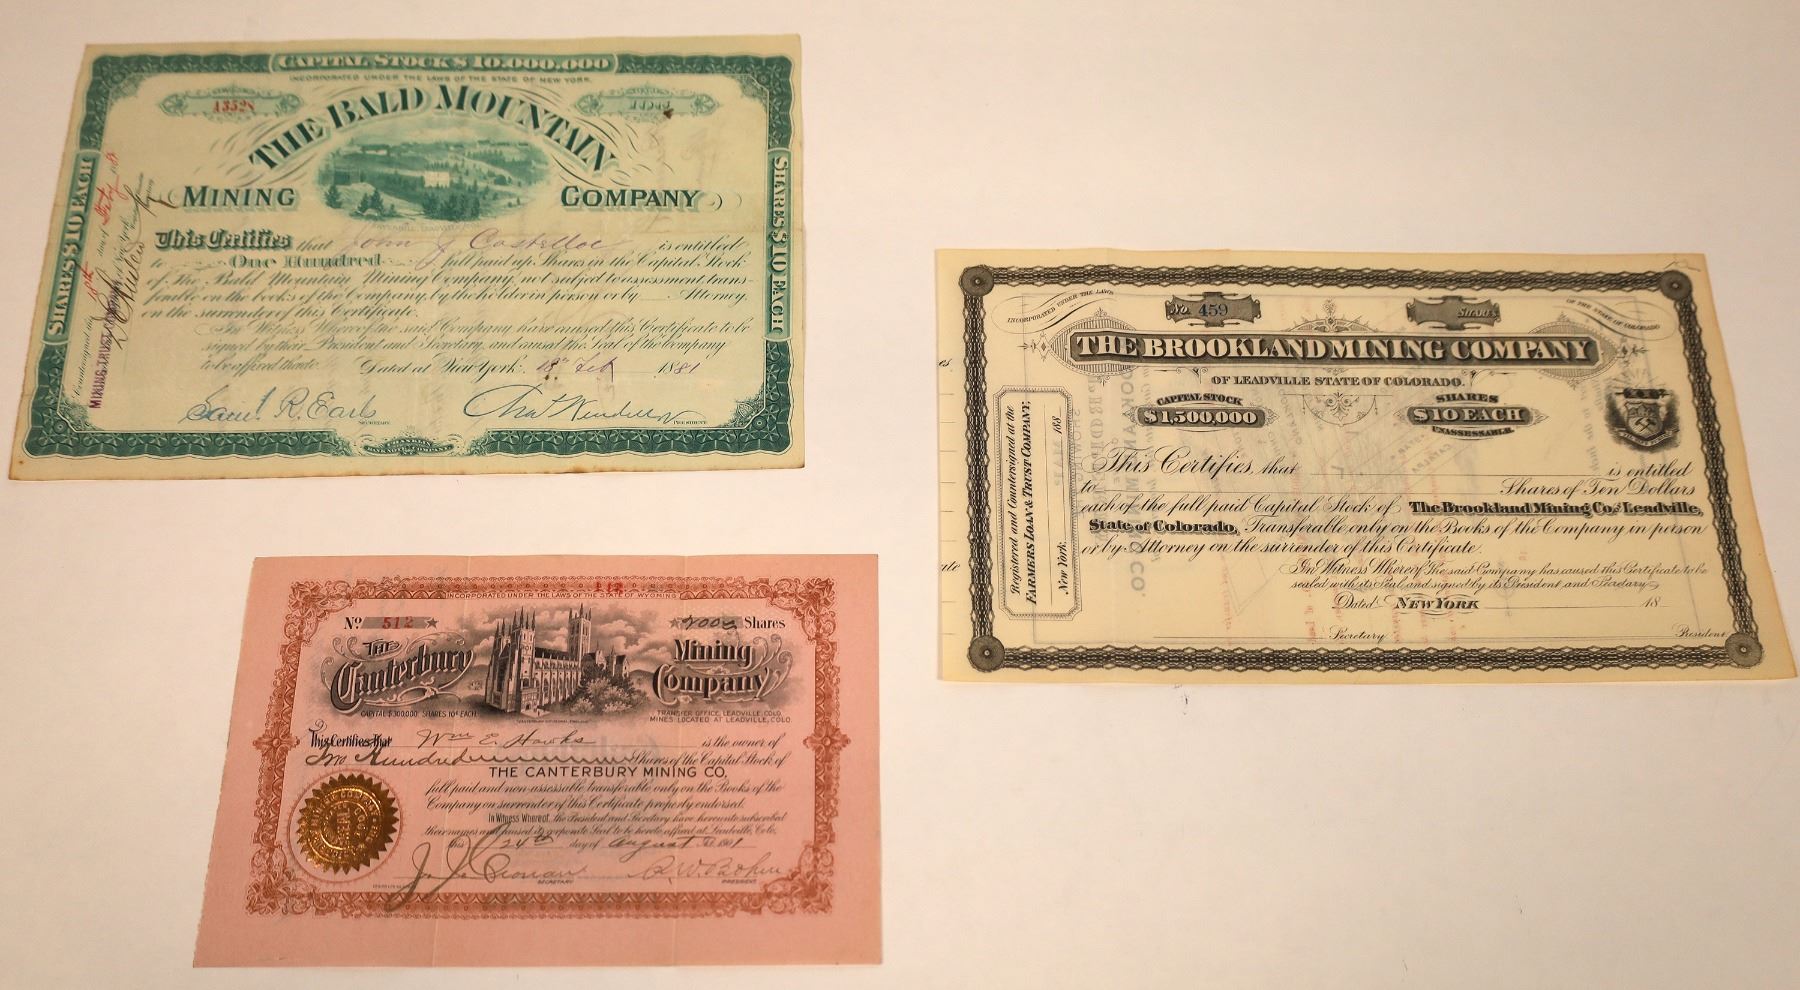 CAPITAL STOCK $10,000,000
INCORPORATED UNDER THE LAWS OF THE STATE OF NEW YORK.
A3528
THE BALD MOUNTAIN
MINING COMPANY
SHARES $10 EACH
SHARES $10 EACH
This Certifies that John J Costelloe is entitled
to One Hundred full paid up Shares in the Capital Stock
of The Bald Mountain Mining Company, not subject to assessment, trans-
ferable on the books of the Company, by the holder in person or by Attorney,
on the surrender of this Certificate.
In Witness Whereof the said Company have caused this Certificate to be
signed by their President and Secretary, and caused the Seal of the Company
to be affixed thereto. Dated at New York, 18th Feb 1881
Saml. R. Earl
SECRETARY
PRESIDENT
Countersigned this 18th day of Feby 188
MINING TRUST COMPANY of New York
INCORPORATED UNDER THE LAWS OF THE STATE OF COLORADO
No. 459
Shares
THE BROOKLAND MINING COMPANY
OF LEADVILLE STATE OF COLORADO.
CAPITAL STOCK
$1,500,000
SHARES
$10 EACH
UNASSESSABLE.
Registered and Countersigned at the
FARMERS LOAN & TRUST COMPANY,
New York, 188
This Certifies, that is entitled
to Shares of Ten Dollars
each of the full paid Capital Stock of The Brookland Mining Co. of Leadville,
State of Colorado, Transferable only on the Books of the Company in person
or by Attorney on the surrender of this Certificate.
In Witness Whereof The said Company has caused this Certificate to be
sealed with its Seal and signed by its President and Secretary
Dated NEW YORK 18
Secretary President
INCORPORATED UNDER THE LAWS OF THE STATE OF WYOMING
No 512
200 Shares
The Canterbury Mining Company
CAPITAL $300,000. SHARES 10¢ EACH.
CANTERBURY CATHEDRAL, ENGLAND
TRANSFER OFFICE, LEADVILLE, COLO.
MINES LOCATED AT LEADVILLE, COLO.
This Certifies that Wm E. Hawks is the owner of
Two Hundred Shares of the Capital Stock of
THE CANTERBURY MINING CO.
full paid and non-assessable transferable only on the Books of the
Company on surrender of this Certificate properly endorsed.
In Witness Whereof, the President and Secretary have hereunto subscribed
their names and caused its corporate Seal to be hereto affixed at Leadville, Colo.
this 24th day of August A.D. 1901
SECRETARY
PRESIDENT